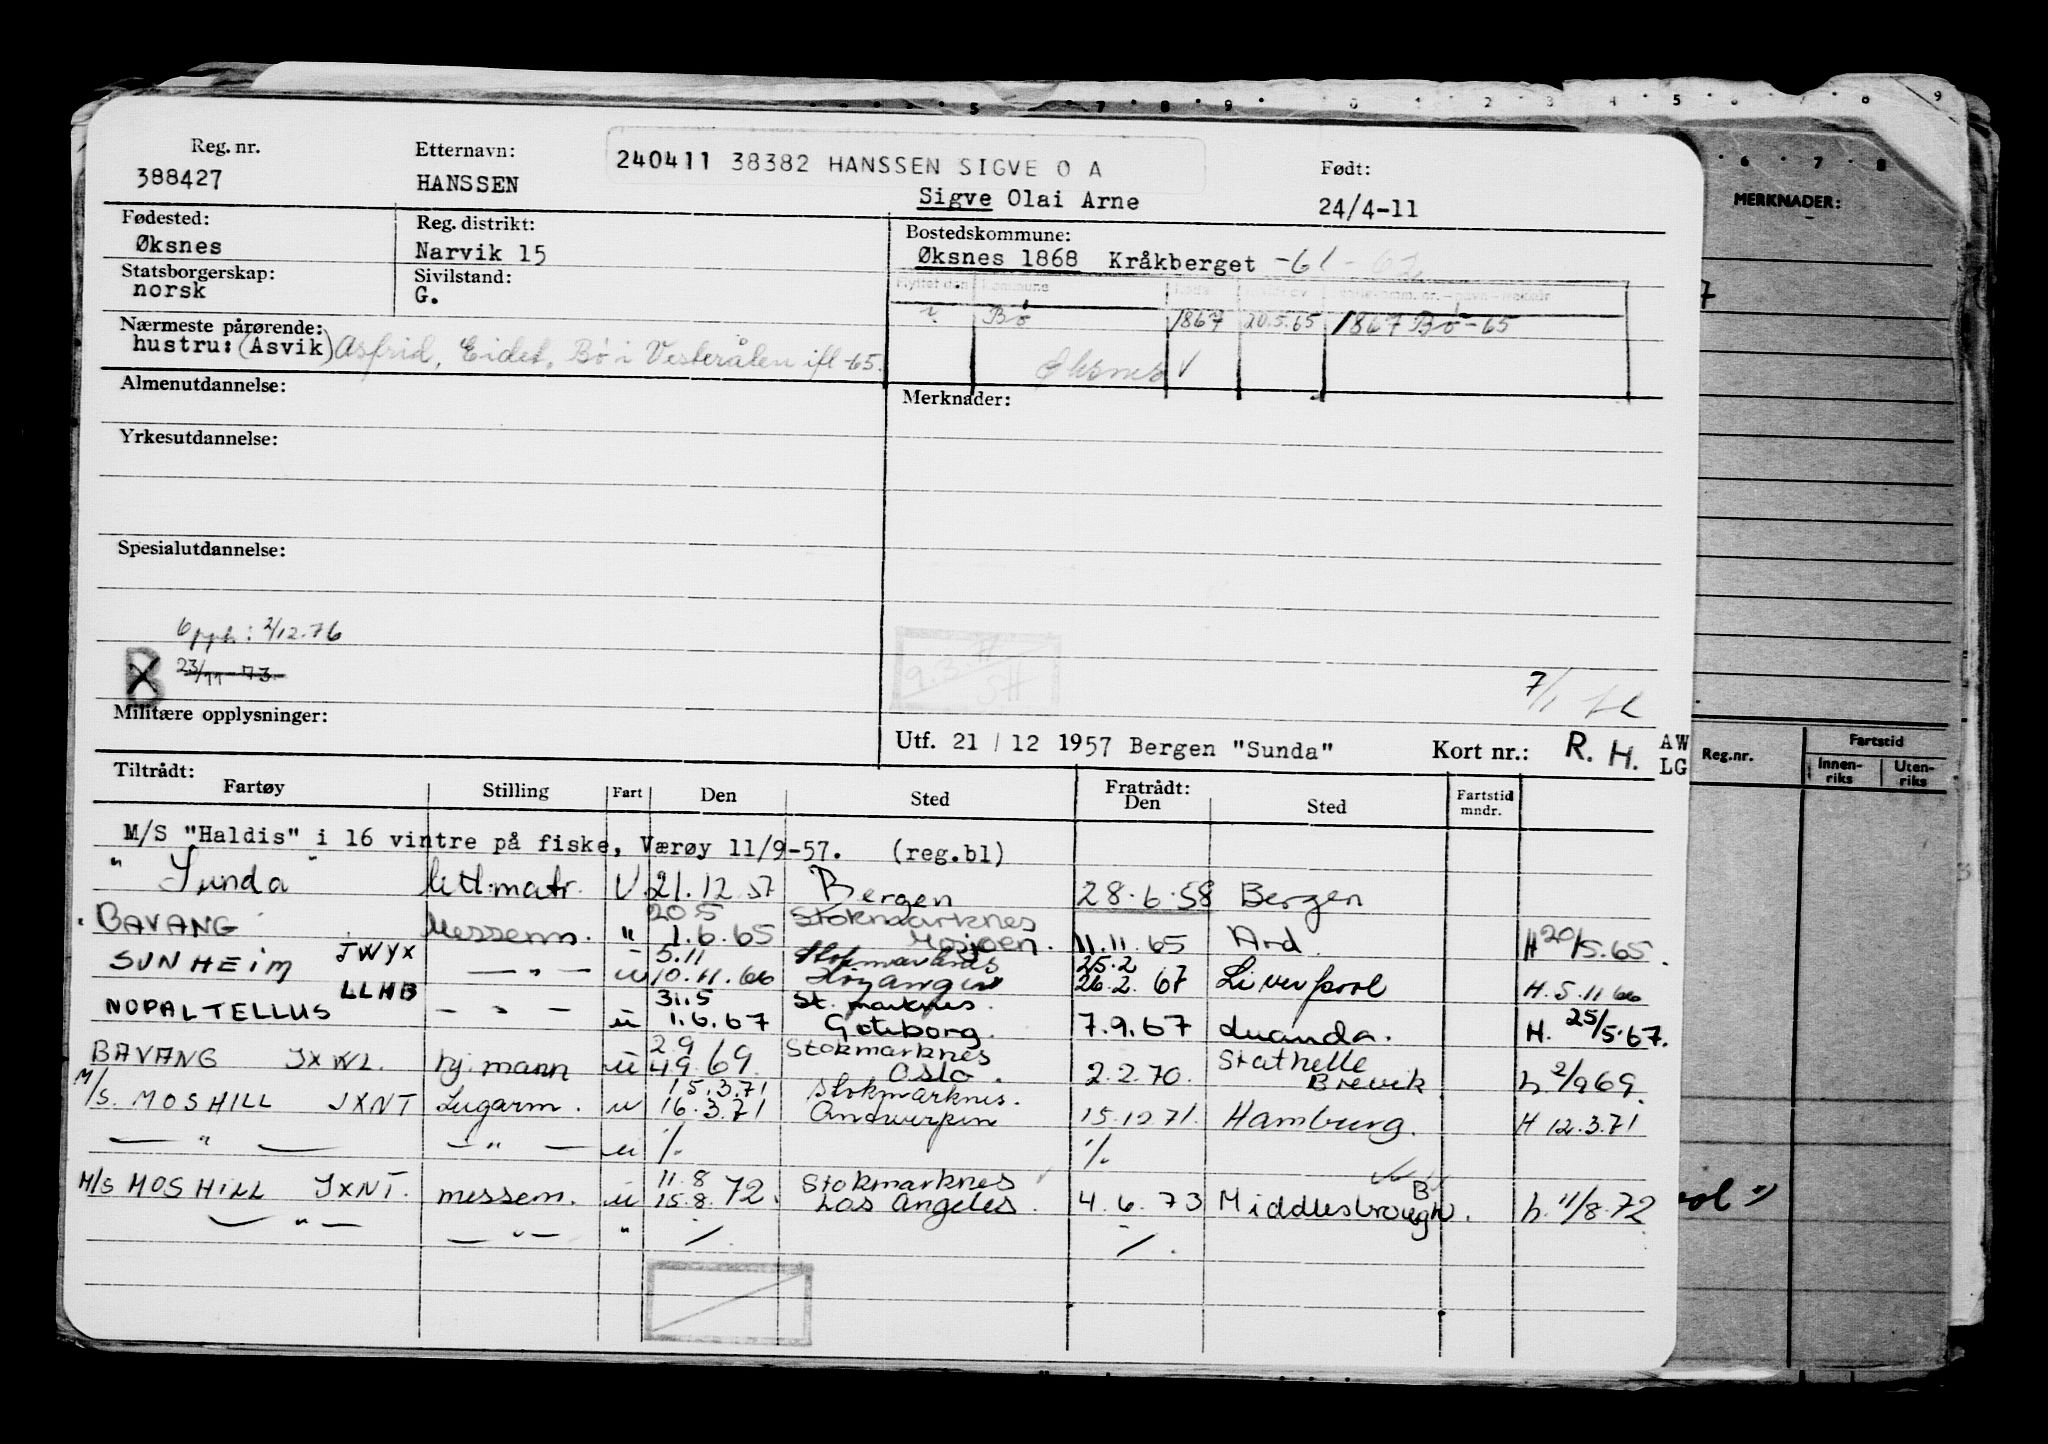 Reg. nr. Etternavn: 240411 38382 HANSSEN SIGVE O A Født:
388427 HANSSEN Sigve Olai Arne 24/4-11
Fødested: Reg. distrikt: Bostedskommune:
Øksnes Narvik 15 Øksnes 1868 Kråkberget -61-62
Statsborgerskap: Sivilstand:
norsk G.
Flyttet den Kommune
Bö 1867 20.5.65 1867 Bö-65
Nærmeste pårørende:
hustru: (Asvik) Asfrid, Eidet, Bö i Vesterålen ifl -65.
Øksnes V
Almenutdannelse: Merknader:
Yrkesutdannelse:
Spesialutdannelse:
Opph: 2/12.76
B 23/11-73
9.3.71 SH
7/1
Militære opplysninger:
Utf. 21 / 12 1957 Bergen "Sunda" Kort nr.: R. H. AW LG
Tiltrådt: Fratrådt:
Fartøy Stilling Fart Den Sted Den Sted Fartstid mndr.
M/S "Haldis" i 16 vintre på fiske, Værøy 11/9-57. (reg.bl)
" Sunda " lettmatr. U. 21.12.57 Bergen 28.6.58 Bergen
20.5 Stokmarknes
BAVANG Messem. " 1.6.65 Mosjøen. 11.11.65 Ard. H 20/5.65.
JWYX 5.11 Stokmarknes 25.2
SUNHEIM — " — u 10.11.66 Höyanger 26.2.67 Liverpool H. 5.11 66
LLHB 31.5 St. marknes.
NOPAL TELLUS — " — u 1.6.67 Göteborg. 7.9.67 Luanda. H. 25/5.67.
2.9 Stokmarknes Stathelle
BAVANG JXWL. hj. mann u 4.9.69. Oslo. 2.2.70. Brevik h 2/9 69.
15.3.71 Stokmarknes.
M/S. MOSHILL JXNT Lugarm. u 16.3.71 Antwerpen 15.12.71. Hamburg. H 12.3.71
— " — — " — u /. /.
11.8 Stokmarknes B
M/S MOSHILL JXNT. messem. u 15.8.72. Los Angeles. 4.6.73 Middlesbrough. h. 11/8.72
— " — — " — " /. /.
MERKNADER:
Reg.nr. Fartstid
Innen-riks Uten-riks